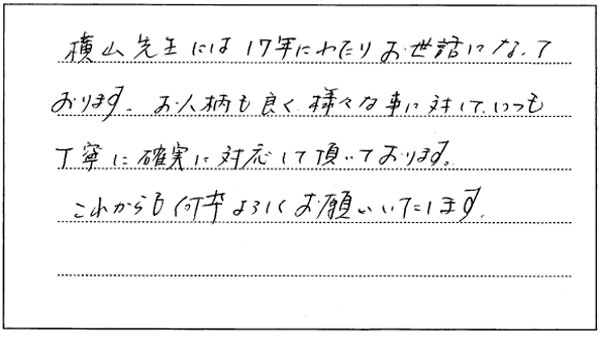 横山先生には17年にわたりお世話になって
おります。お人柄も良く様々な事に対して、いつも
丁寧に確実に対応して頂いております。
これからも何卒よろしくお願いいたします。